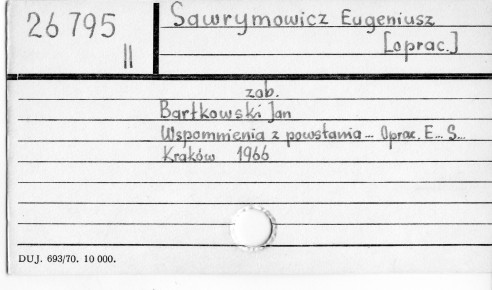 26 795
II
Sawrymowicz Eugeniusz
[oprac.]
zob.
Bartkowski Jan
Wspomnienia z powstania... Oprac. E... S...
Kraków 1966
DUJ. 693/70. 10 000.